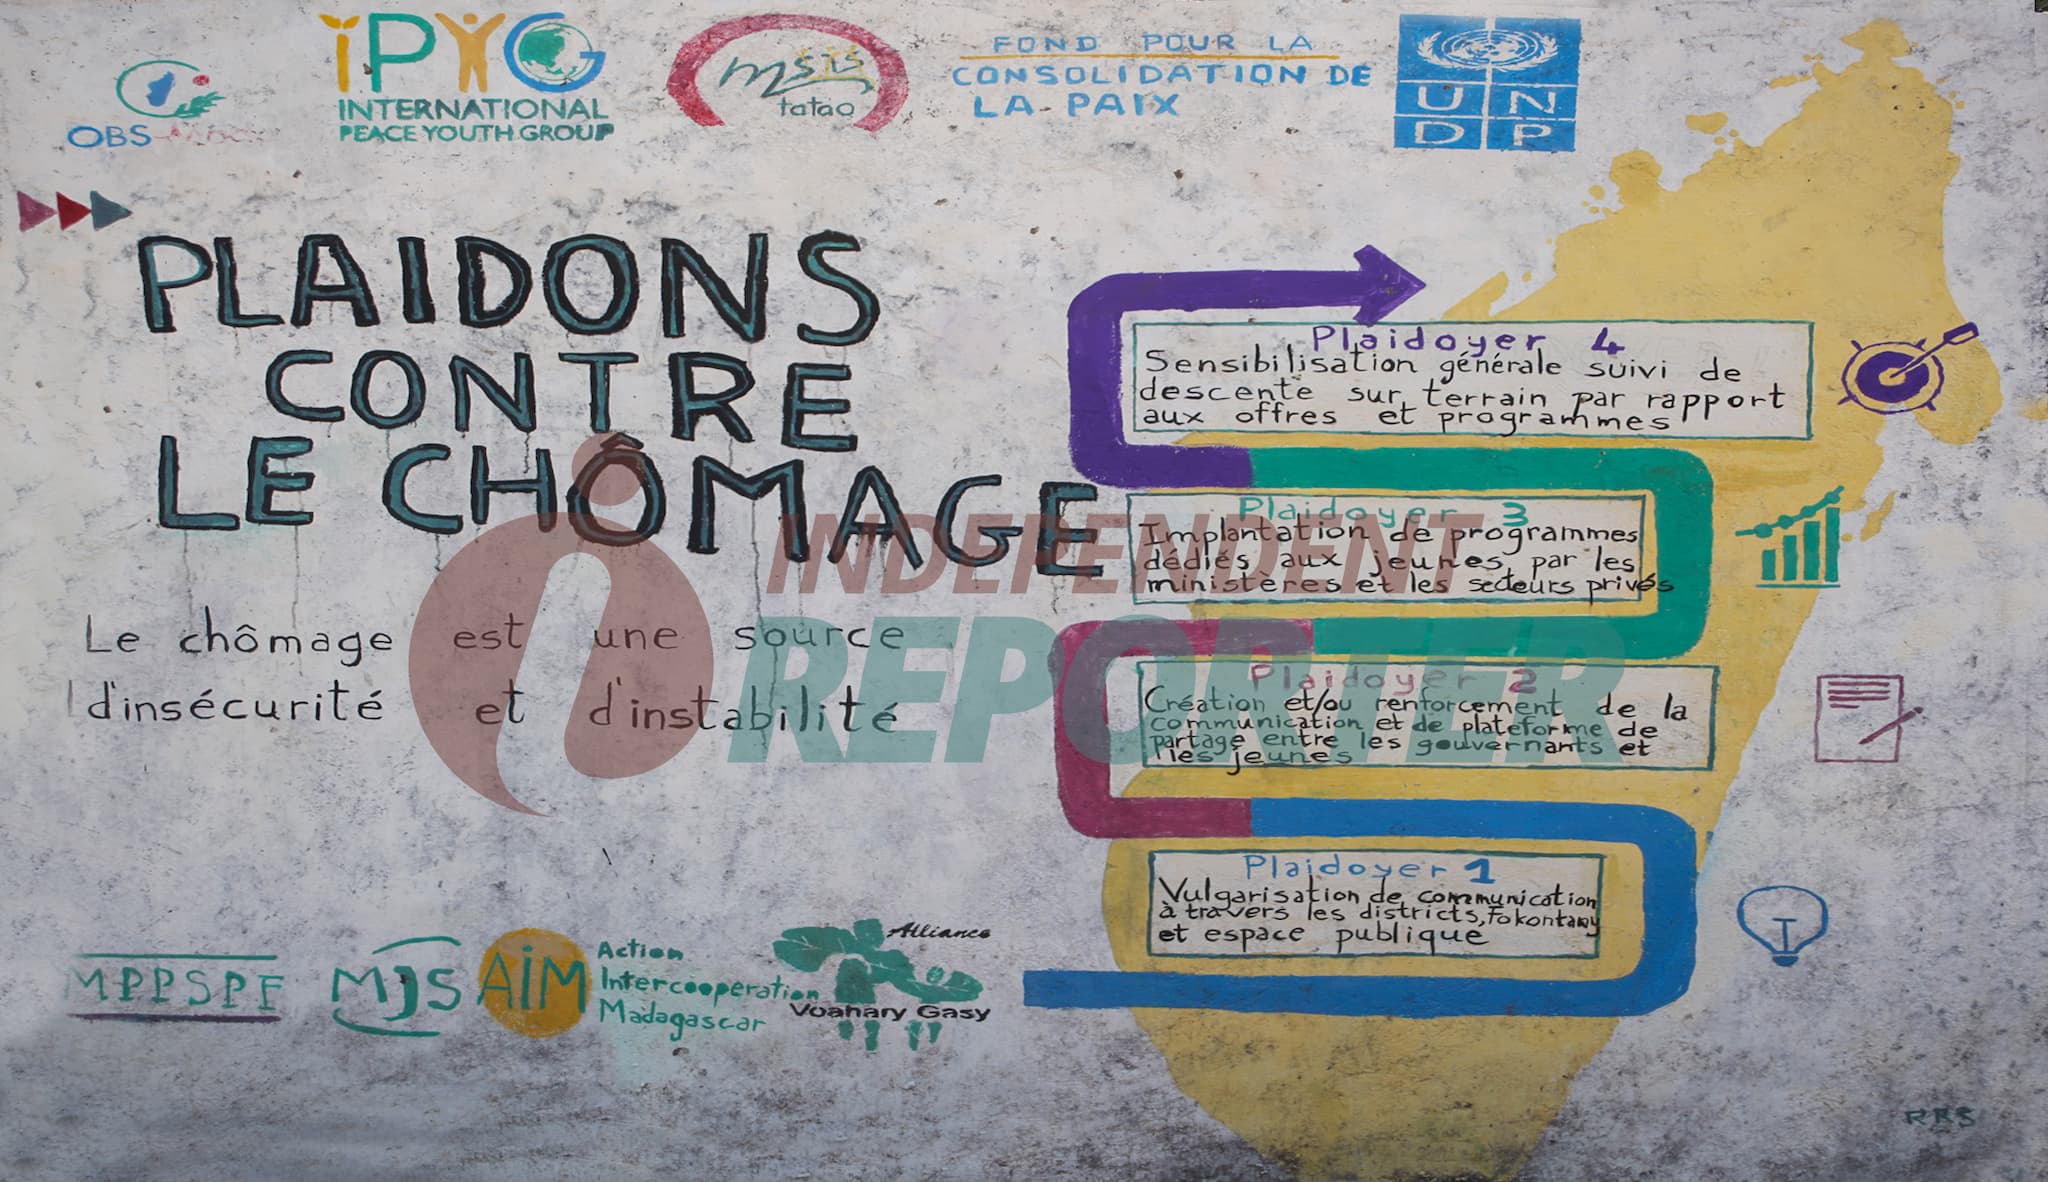 OBS-
IPYG
INTERNATIONAL
PEACE YOUTH GROUP
msis
tatao
FOND POUR LA
CONSOLIDATION DE
LA PAIX
UN
DP
PLAIDONS
CONTRE
LE CHÔMAGE
Le chômage est une source
d'insécurité et d'instabilité
Plaidoyer 4
Sensibilisation générale suivi de
descente sur terrain par rapport
aux offres et programmes
Plaidoyer 3
Implantation de programmes
dédiés aux jeunes par les
ministères et les secteurs privés
Plaidoyer 2
Création et/ou renforcement de la
communication et de plateforme de
partage entre les gouvernants et
les jeunes
Plaidoyer 1
Vulgarisation de communication
à travers les districts, Fokontany
et espace publique
MPPSPF
MJS
AIM
Action
Intercooperation
Madagascar
Alliance
Voahary Gasy
RRS
INDEPENDENT
REPORTER